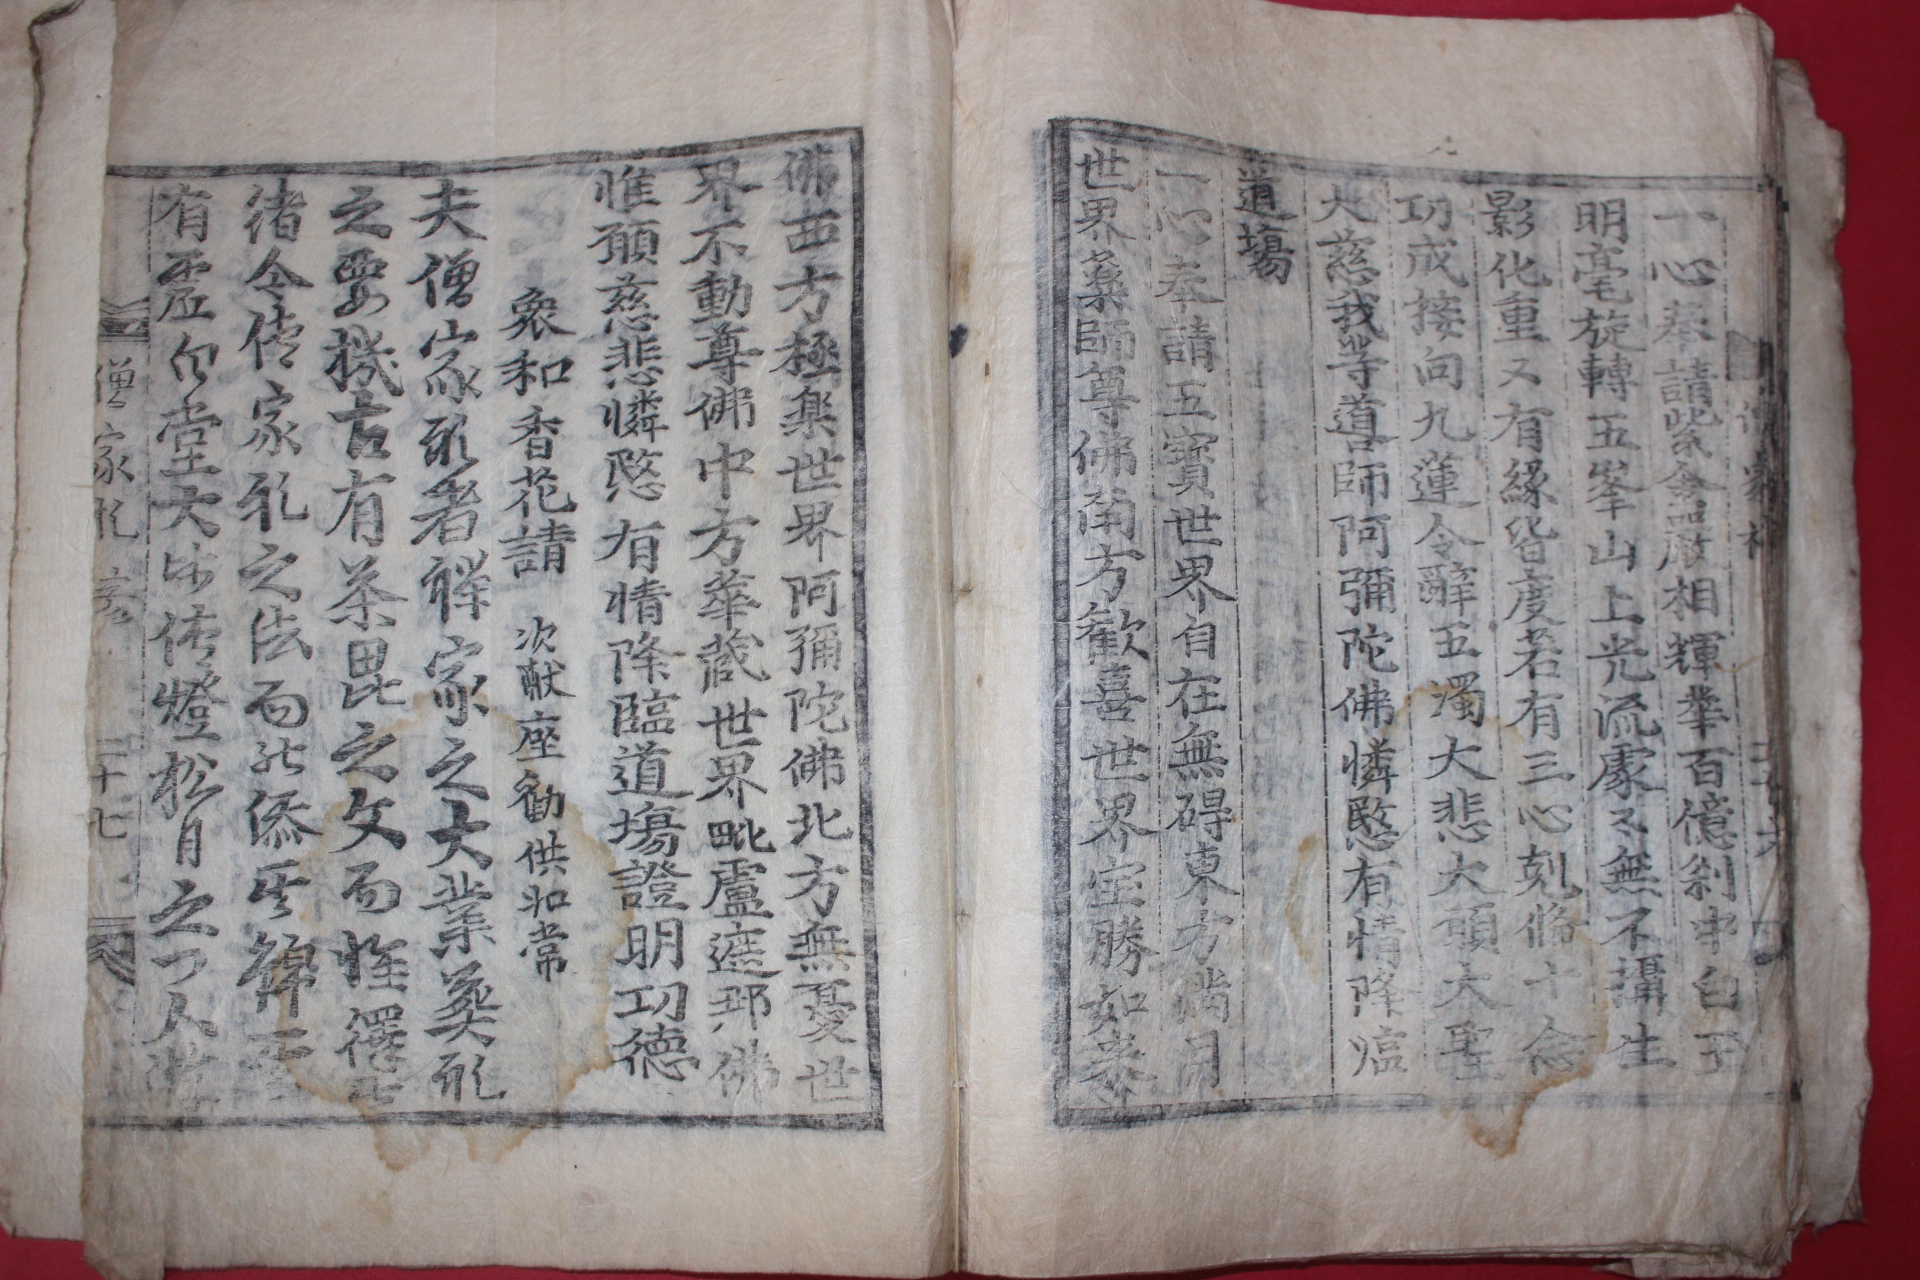 一心奉請紫金嚴相輝華百億刹中白玉
明毫旋轉五峯山上光流處々無不攝生
影化重又有緣皆度若有三心剋脩十念
功成接向九蓮令辭五濁大悲大願大聖
大慈我等導師阿彌陀佛憐愍有情降臨
道場
一心奉請五寶世界自在無碍東方滿月
世界藥師尊佛南方歡喜世界宝勝如來
佛西方極楽世界阿彌陀佛北方無憂世
界不動尊佛中方華蔵世界毗盧遮那佛
惟願慈悲憐愍有情降臨道場證明功德
衆和香花請 次献座勧供如常
夫僧家礼者禅家之大業葬礼
之要機古有茶毘之文而惟釋
徒令传家礼之法而
有虛白堂大师传燈松月之一人
僧家礼 二十七